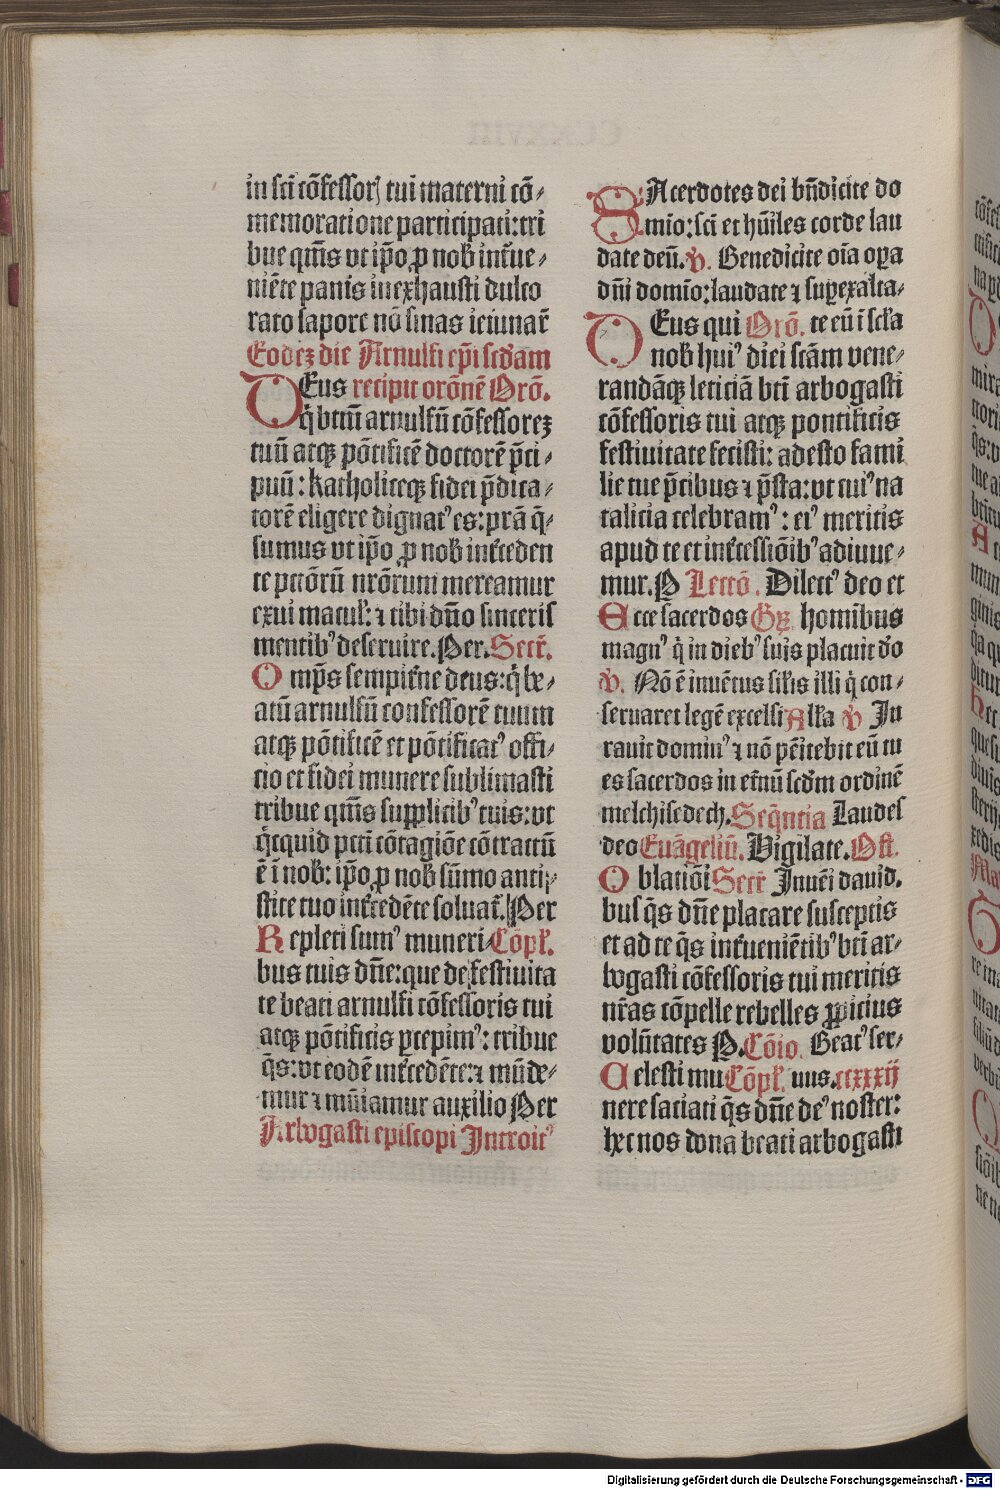 in sci cōfessorꝭ tui materni cō-
memoratione participati: tri
bue qm̄s vt ip̄o ꝓ nob̄ int̄ue-
niēte panis inexhausti dulco
rato sapore nō sinas ieiunar̄
Eodeꝫ die Arnulfi ep̄i scd̄am
DEus recipit orōnē Orō.
q̄ btm̄ arnulfū cōfessoreꝫ
tuū atqꝫ pōtificē doctorē p̄ci-
puū: katholiceqꝫ fidei p̄dica-
torē eligere dignat᾽ es: prā q̄-
sumus vt ip̄o ꝓ nob̄ int̄ceden
te pctōrū nrōrum mereamur
exui macul̄: ⁊ tibi dn̄o sinceris
mentib᾽ deseruire. Per. Secr̄.
Omp̄s sempit̄ne deus: q̄ be-
atū arnulfū confessorē tuum
atqꝫ pōtificē et pōtificat᾽ offi-
cio et fidei munere sublimasti
tribue qm̄s supplicib᾽ tuis: vt
q̄cquid pcti cōtagiōe cōtractū
ē ī nob̄: ip̄o ꝓ nob̄ sūmo anti-
stite tuo int̄cedēte soluat̄. Per
Repleti sum᾽ muneri- Cōpl̄.
bus tuis dn̄e: que de festiuita
te beati arnulfi cōfessoris tui
atqꝫ pōtificis ꝑcepim᾽: tribue
q̄s: vt eodē int̄cedēte: ⁊ mūde-
mur ⁊ mūiamur auxilio Per
Arbogasti episcopi Introit᾽
SAcerdotes dei bn̄dicite do
mīo: sci et hūiles corde lau
date deū. V. Benedicite oīa oꝑa
dn̄i domīo: laudate ⁊ suꝑexalta-
DEus qui Orō. te eū ī scl̄a
nob̄ hui᾽ diei scām vene-
randāqꝫ leticiā bti arbogasti
cōfessoris tui atqꝫ pontificis
festiuitate fecisti: adesto fami
lie tue p̄cibus ⁊ p̄sta: vt cui᾽ na
talicia celebram᾽: ei᾽ meritis
apud te et int̄cessiōib᾽ adiuue-
mur. P Lectō. Dilect᾽ deo et
Ecce sacerdos Gꝝ. homībus
magn᾽ q̄ in dieb᾽ suis placuit do
V. Nō ē inuētus sil̄is illi q̄ con-
seruaret legē excelsi All̄a V Ju
rauit domin᾽ ⁊ nō pēitebit eū tu
es sacerdos in et̄nū scd̄m ordinē
melchisedech. Seq̄ntia Laudes
deo Euāgeliū. Vigilate. Off.
Oblatiōi Secr̄ Jnuēi dauid.
bus q̄s dn̄e placare susceptis
et ad te q̄s int̄ueniētib᾽ bti ar-
bogasti cōfessoris tui meritis
nr̄as cōpelle rebelles ꝓpicius
volūtates P. Cōio. Beat᾽ ser-
Celesti mu Cōpl̄. uus. ccxxxij
nere satiati q̄s dn̄e de᾽ noster:
hec nos dona beati arbogasti
Digitalisierung gefördert durch die Deutsche Forschungsgemeinschaft - DFG